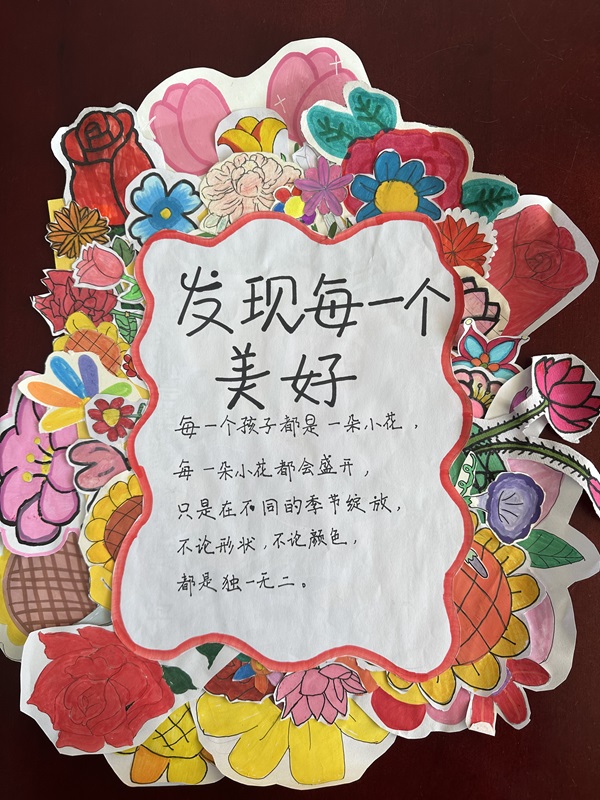 发现每一个
美好
每一个孩子都是一朵小花，
每一朵小花都会盛开，
只是在不同的季节绽放，
不论形状，不论颜色，
都是独一无二。